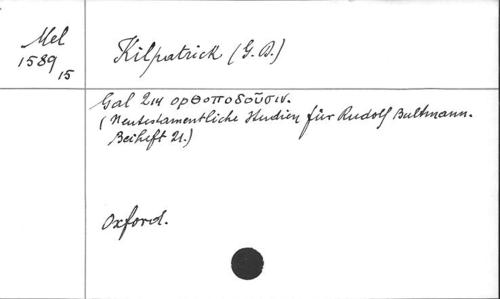 Mel
1589
15
Kilpatrick (G. D.)
Gal 2₁₄ ορθοποδοῦσιν.
(Neutestamentliche Studien für Rudolf Bultmann.
Beiheft 21.)
Oxford.